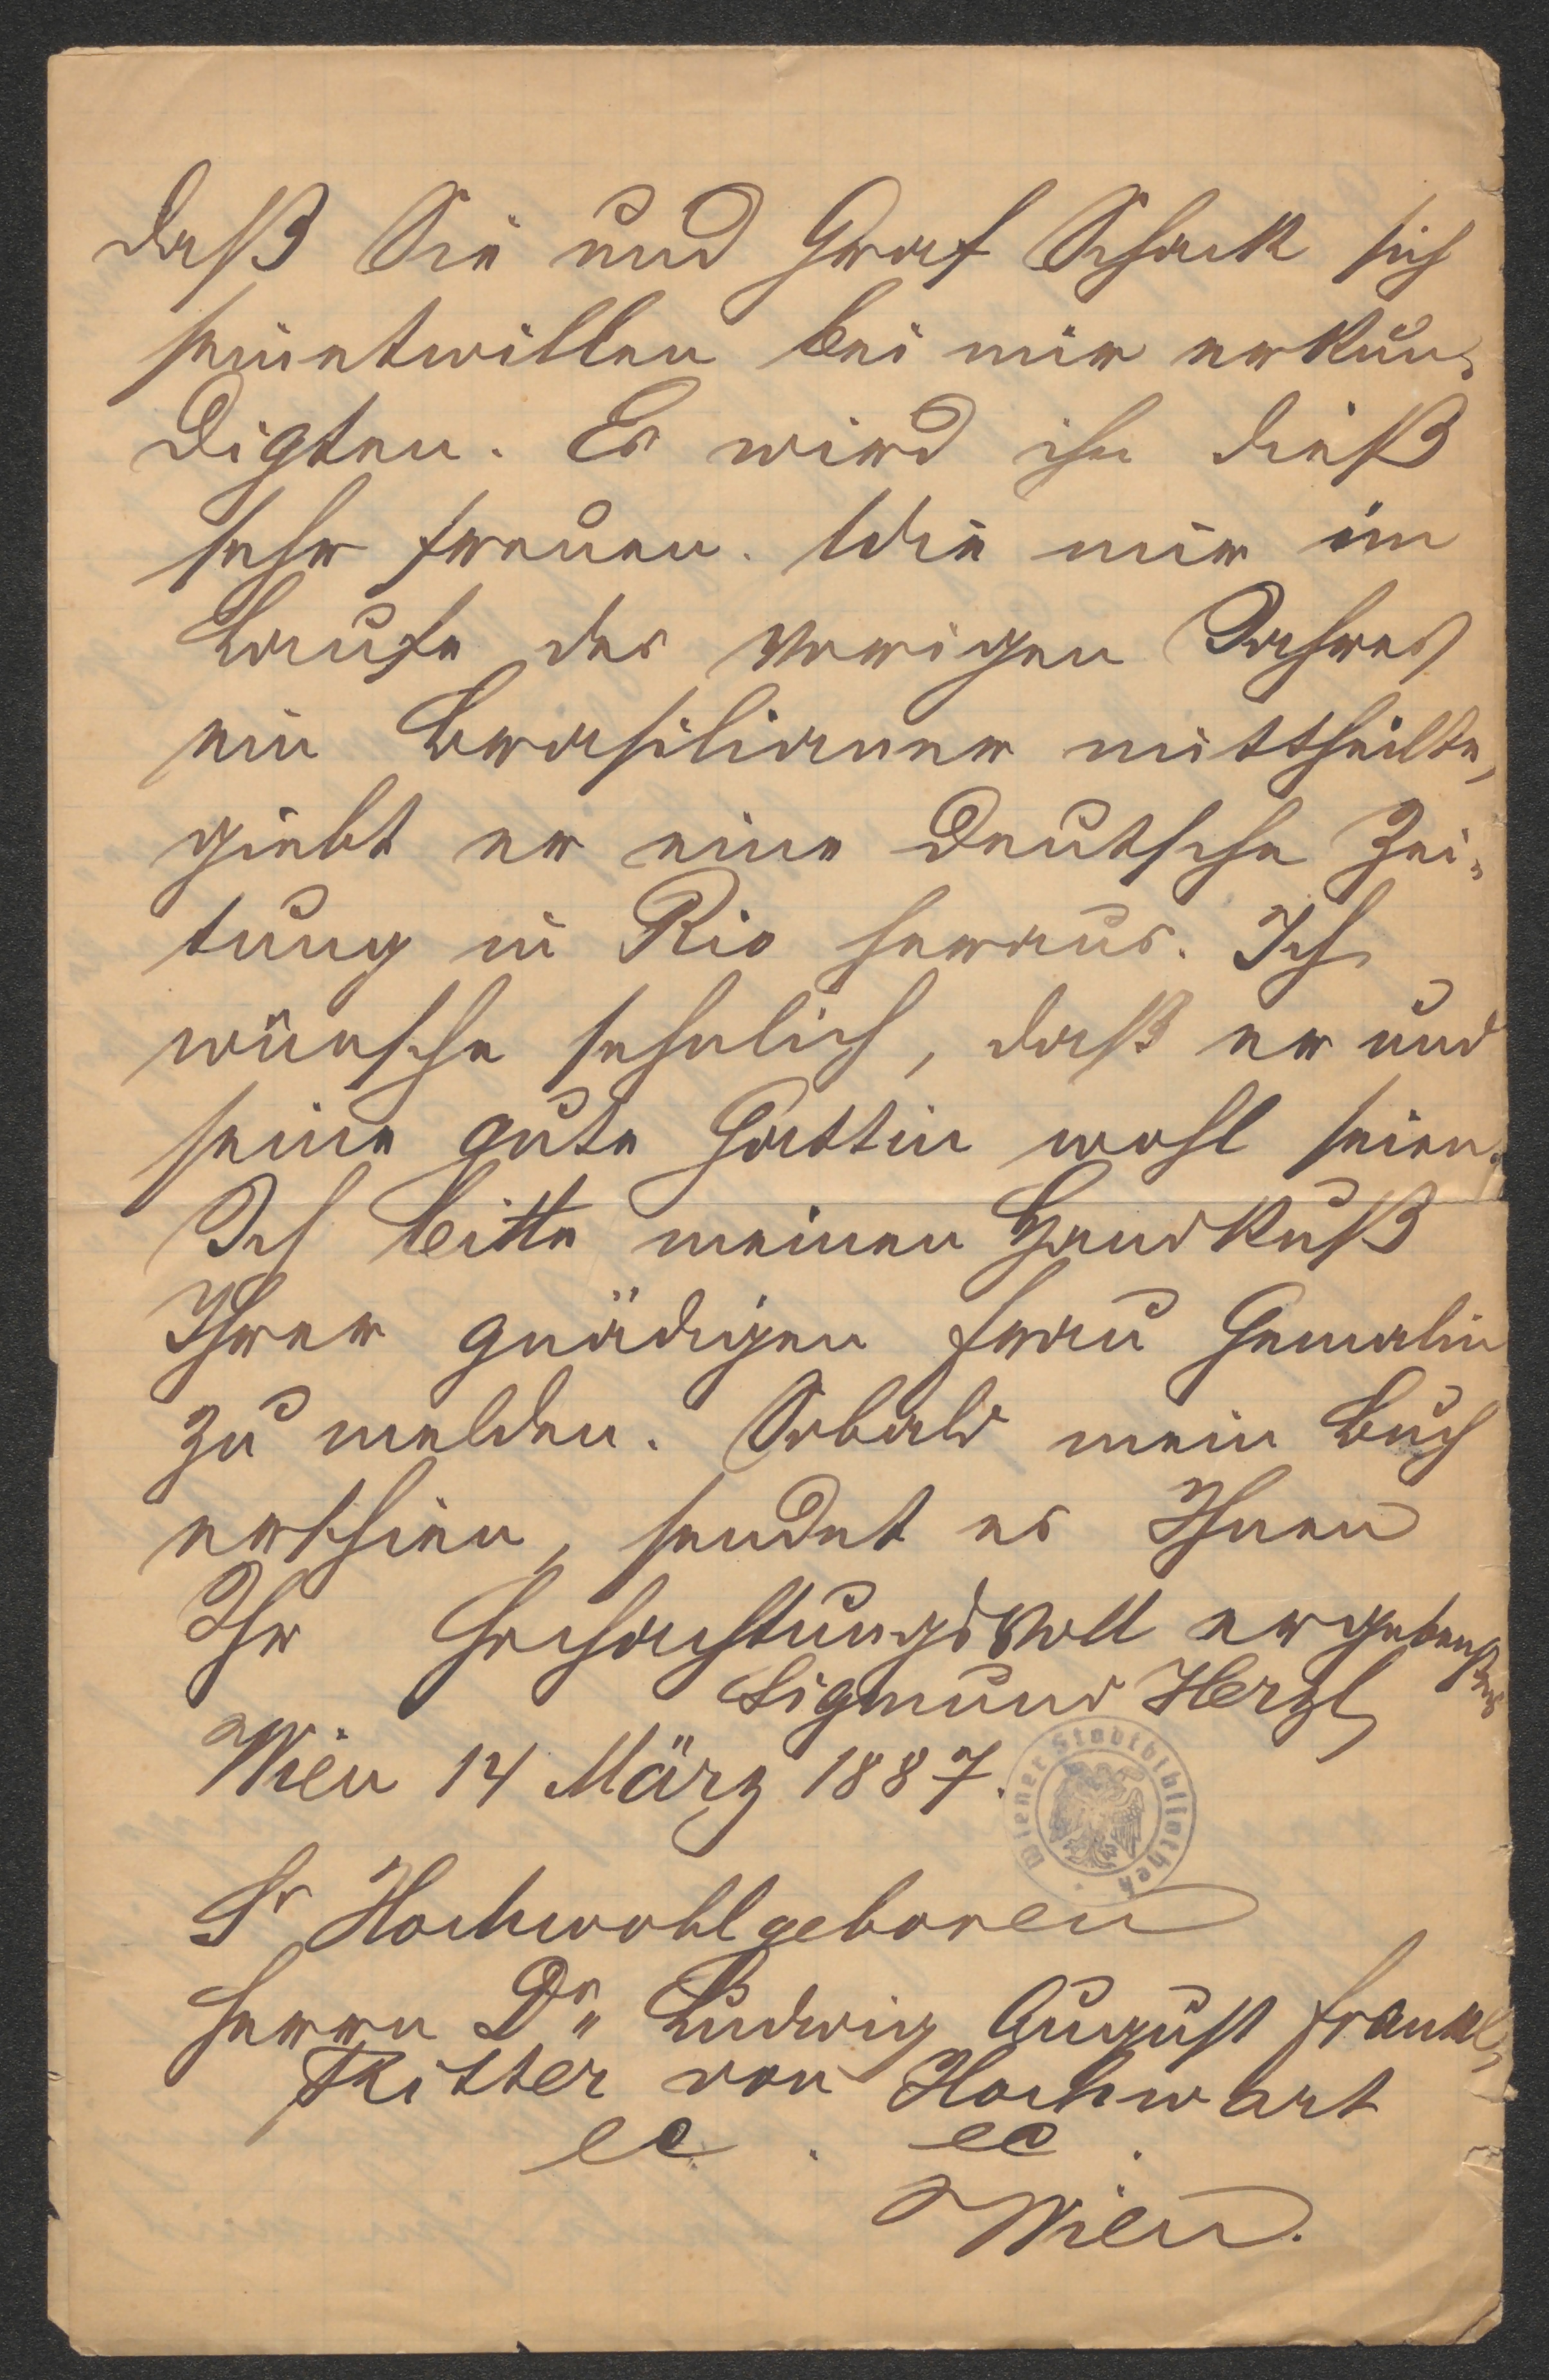 daß Sie und Graf Schack sich
seinetwillen bei mir erkun-
digten. Es wird ihn dieß
sehr freuen. Wie mir im
Laufe des vorigen Jahres
ein Brasilianer mittheilte,
giebt er eine deutsche Zei-
tung in Rio heraus. Ich
wünsche sehnlich, daß er und
seine gute Gattin wohl seien.
Ich bitte meinen Handkuß
Ihrer gnädigen Frau Gemalin
zu melden. Sobald mein Buch
erschien, sendet es Ihnen
Ihr hochachtungsvoll ergebenster
Sigmund Herzl
Wien 14 März 1887.
Wiener Stadtbibliothek
Sr Hochwohlgeboren
Herrn Dr. Ludwig August Frankl,
Ritter von Hochwart
ec. ec.
Wien.